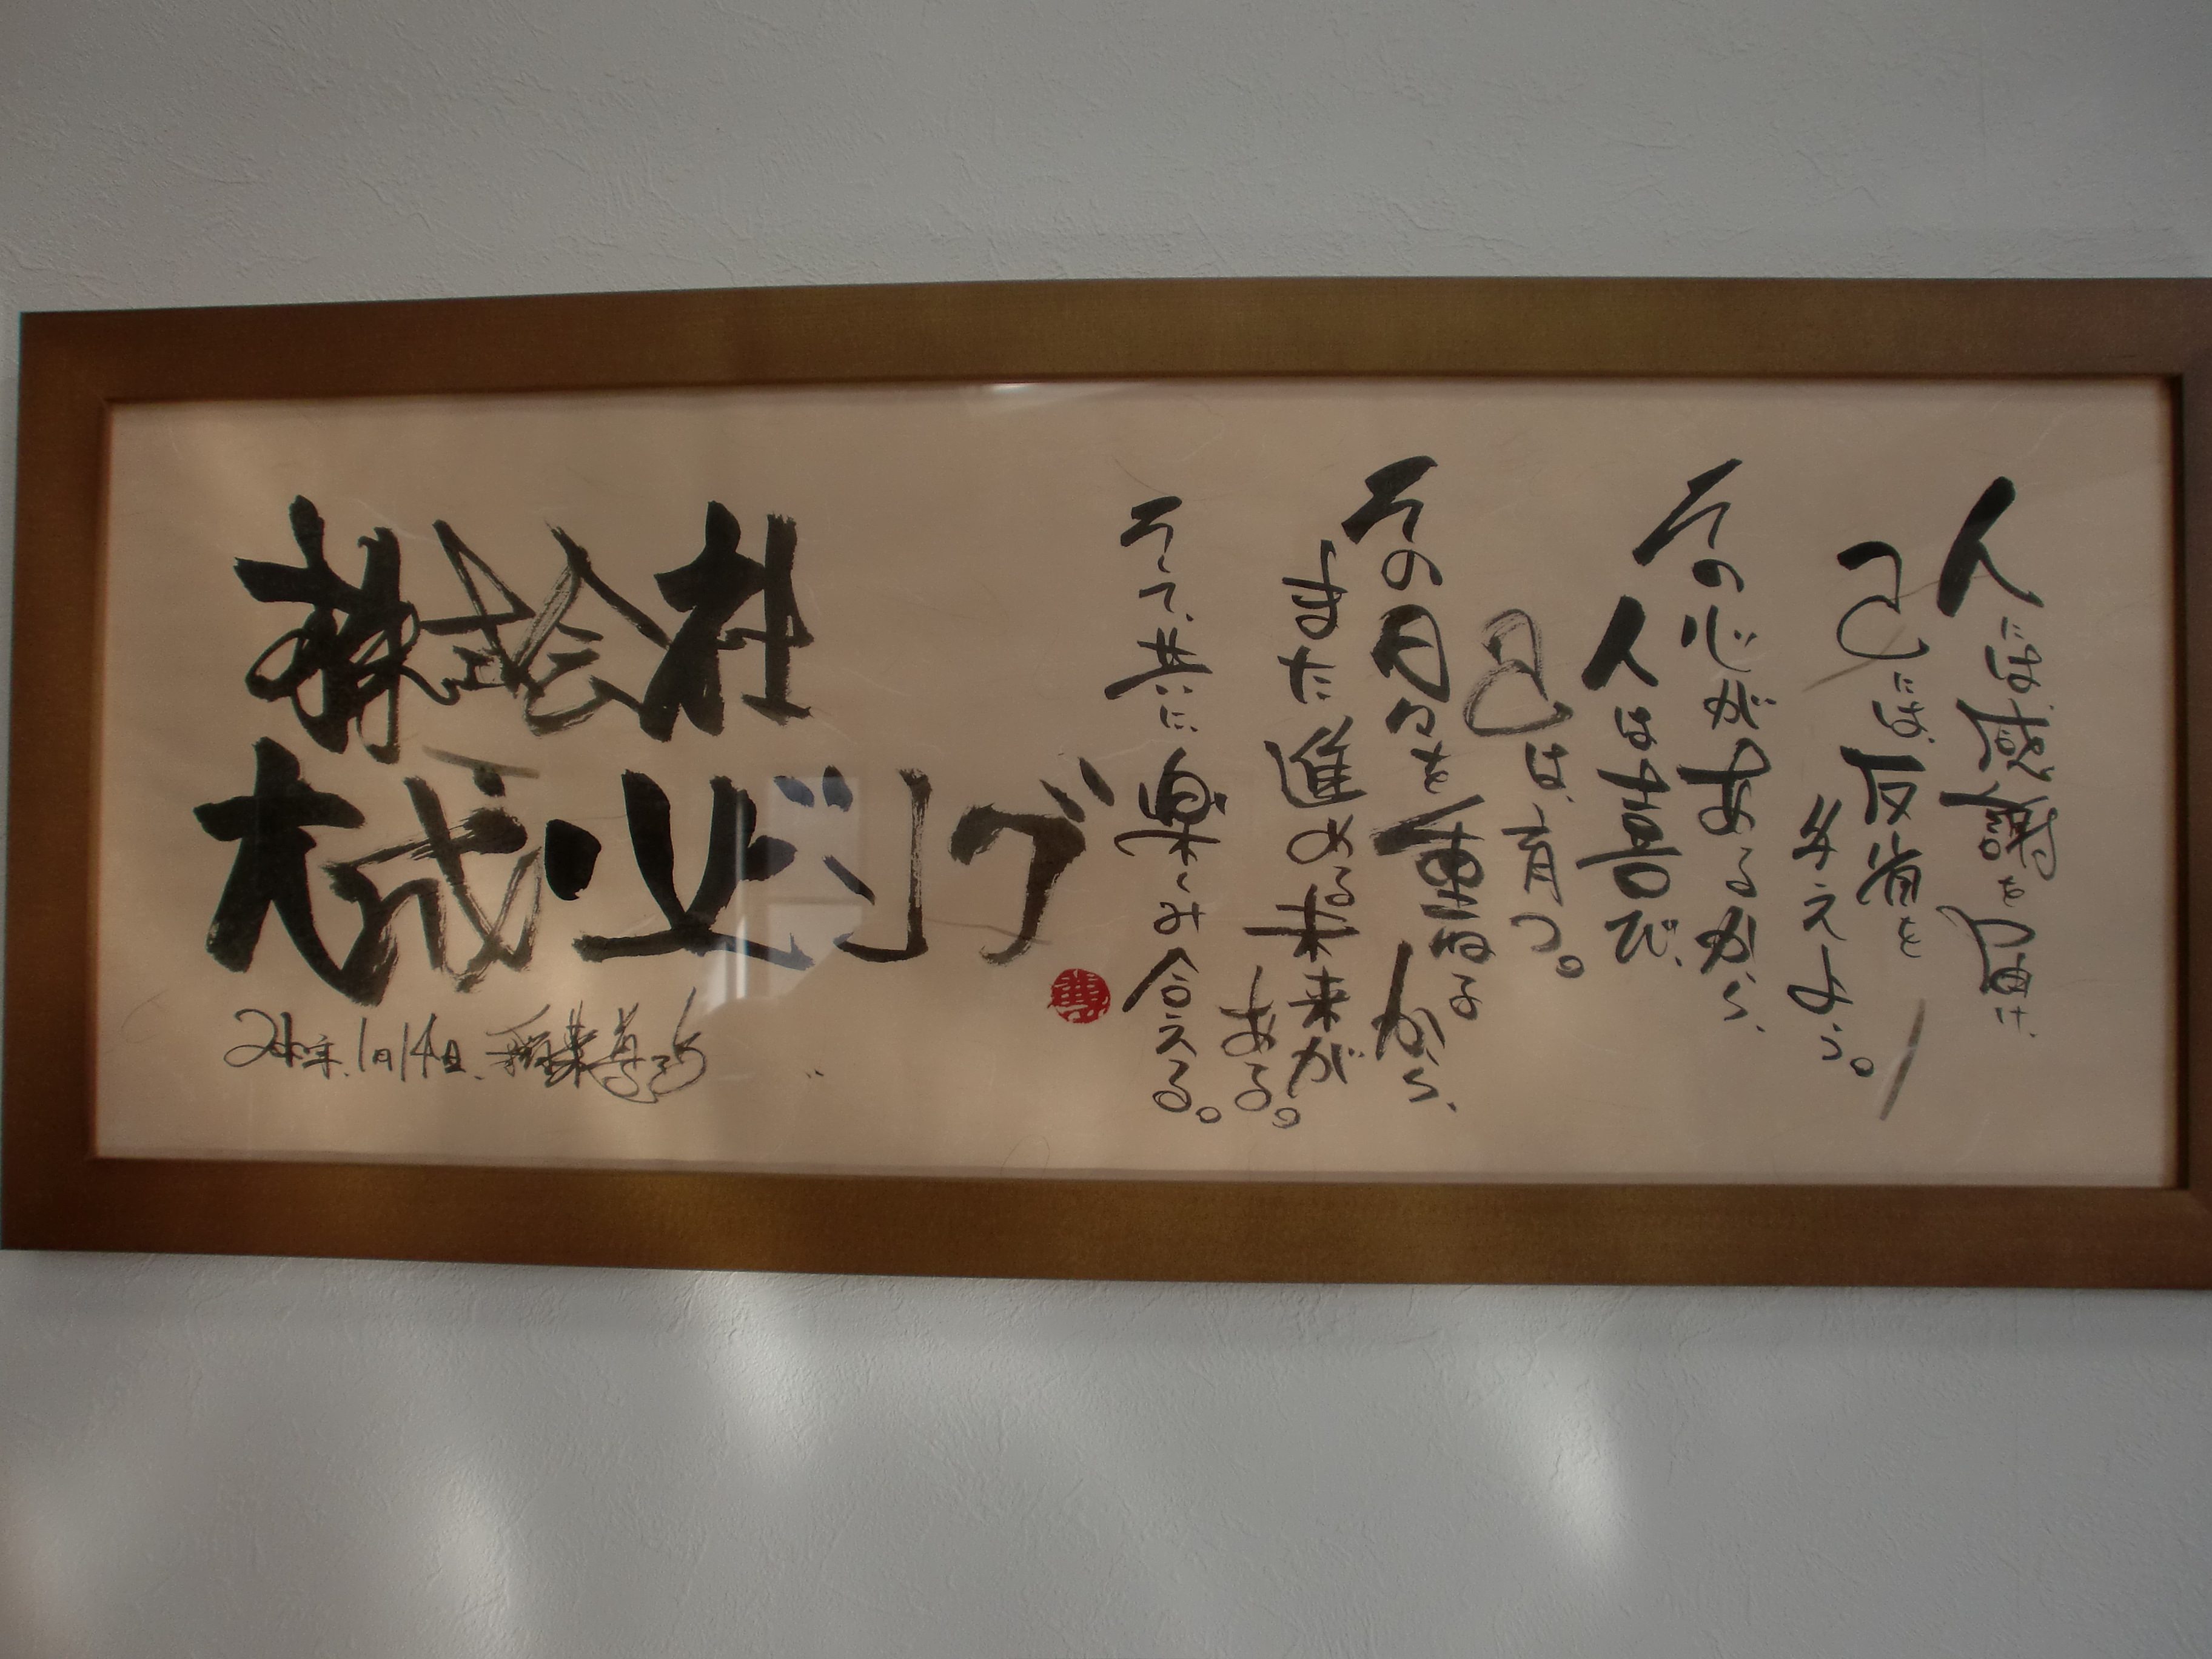 人には感謝を届け、
己には反省を
与えよう。
その心があるから、
人は喜び、
己は、育つ。
その日々を重ねるから、
また進める未来が
ある。
そして、共に楽しみ合える。
株式会社
大成リビング
24年.1月14日.